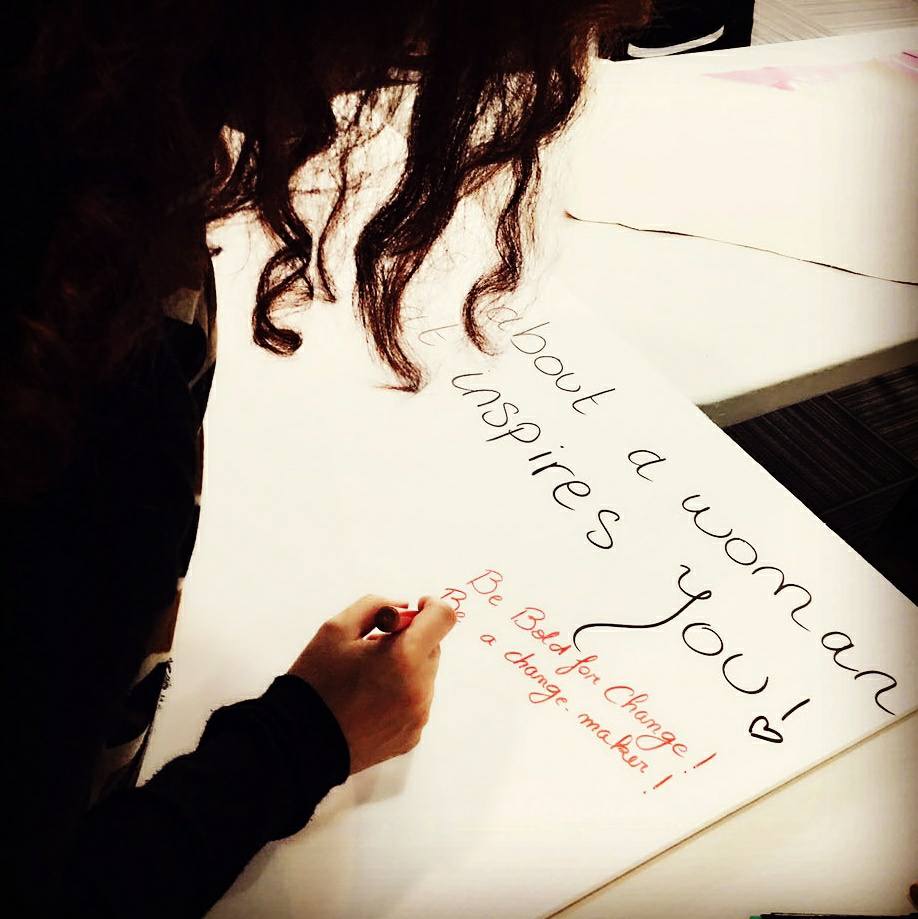 about a woman
inspires you!
Be Bold for Change!
Be a change-maker!